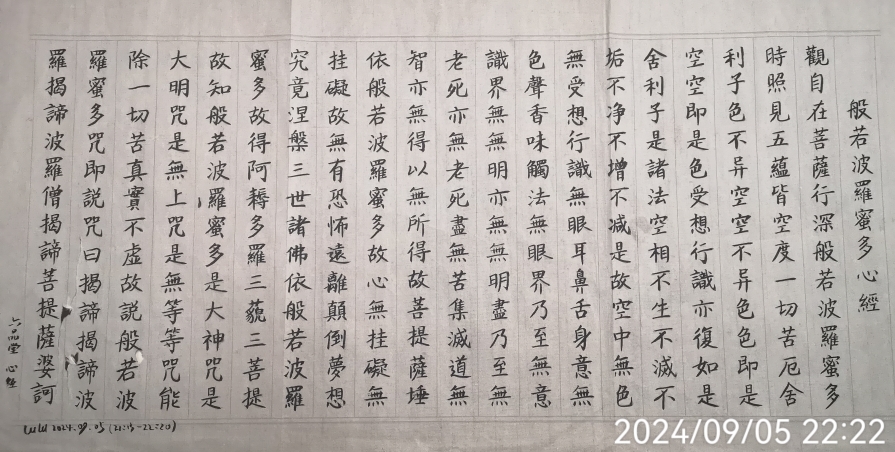 般若波羅蜜多心經
觀自在菩薩行深般若波羅蜜多
時照見五蘊皆空度一切苦厄舍
利子色不异空空不异色色即是
空空即是色受想行識亦復如是
舍利子是諸法空相不生不滅不
垢不净不增不减是故空中無色
無受想行識無眼耳鼻舌身意無
色聲香味觸法無眼界乃至無意
識界無無明亦無無明盡乃至無
老死亦無老死盡無苦集滅道無
智亦無得以無所得故菩提薩埵
依般若波羅蜜多故心無挂礙無
挂礙故無有恐怖遠離顛倒夢想
究竟涅槃三世諸佛依般若波羅
蜜多故得阿耨多羅三藐三菩提
故知般若波羅蜜多是大神咒是
大明咒是無上咒是無等等咒能
除一切苦真實不虛故説般若波
羅蜜多咒即説咒曰揭諦揭諦波
羅揭諦波羅僧揭諦菩提薩婆訶
六品堂 心经
2024.09.05 (21:15-22:20)
2024/09/05 22:22